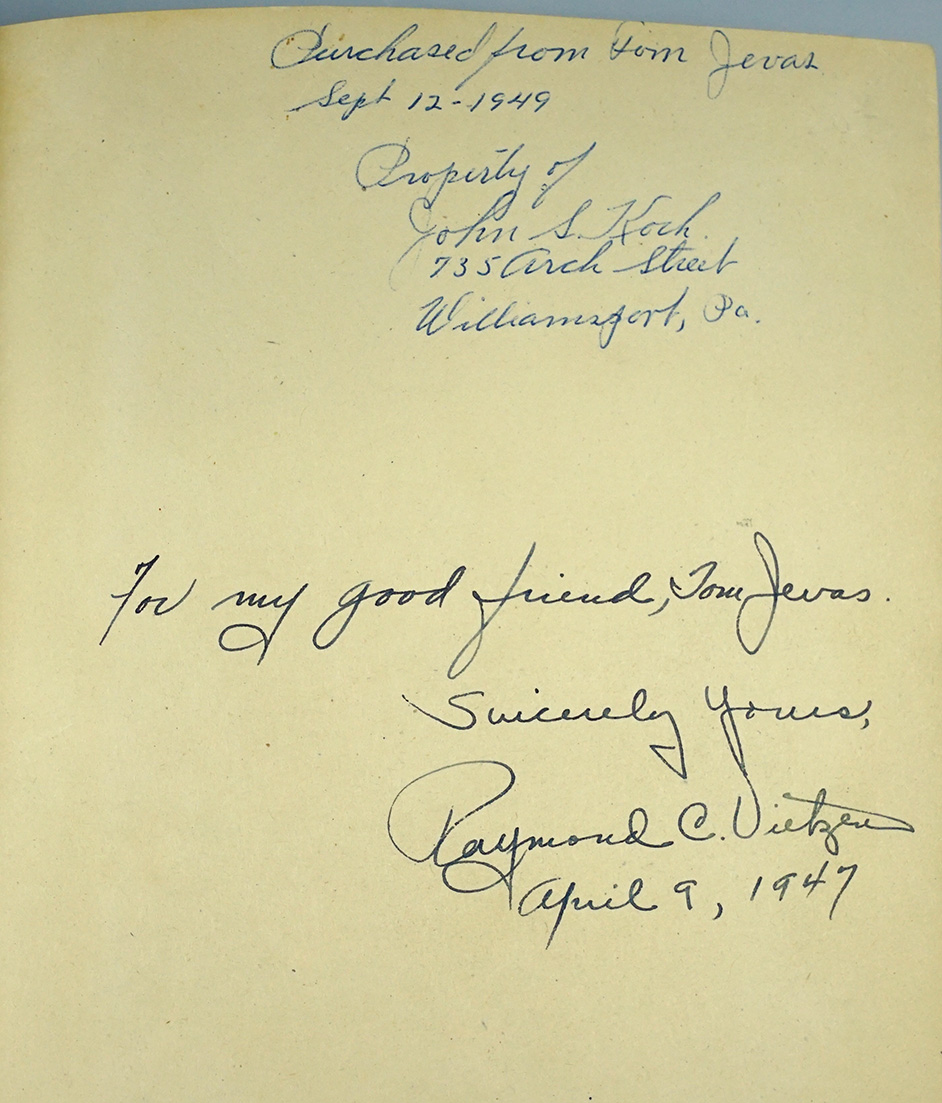 Purchased from Tom Jevas
Sept 12-1949
Property of
John S. Koch.
735 Arch Street
Williamsport, Pa.
For my good friend, Tom Jevas.
Sincerely Yours,
Raymond C. Vietzen
April 9, 1947